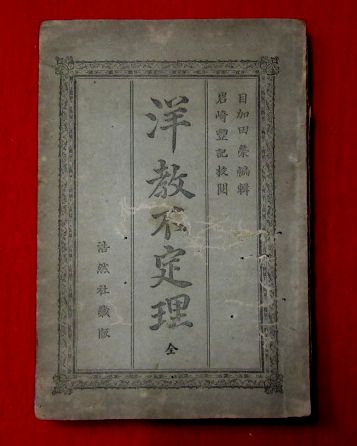 目加田榮編輯
岩崎豐記校閲
洋教不定理
全
浩然社蔵版